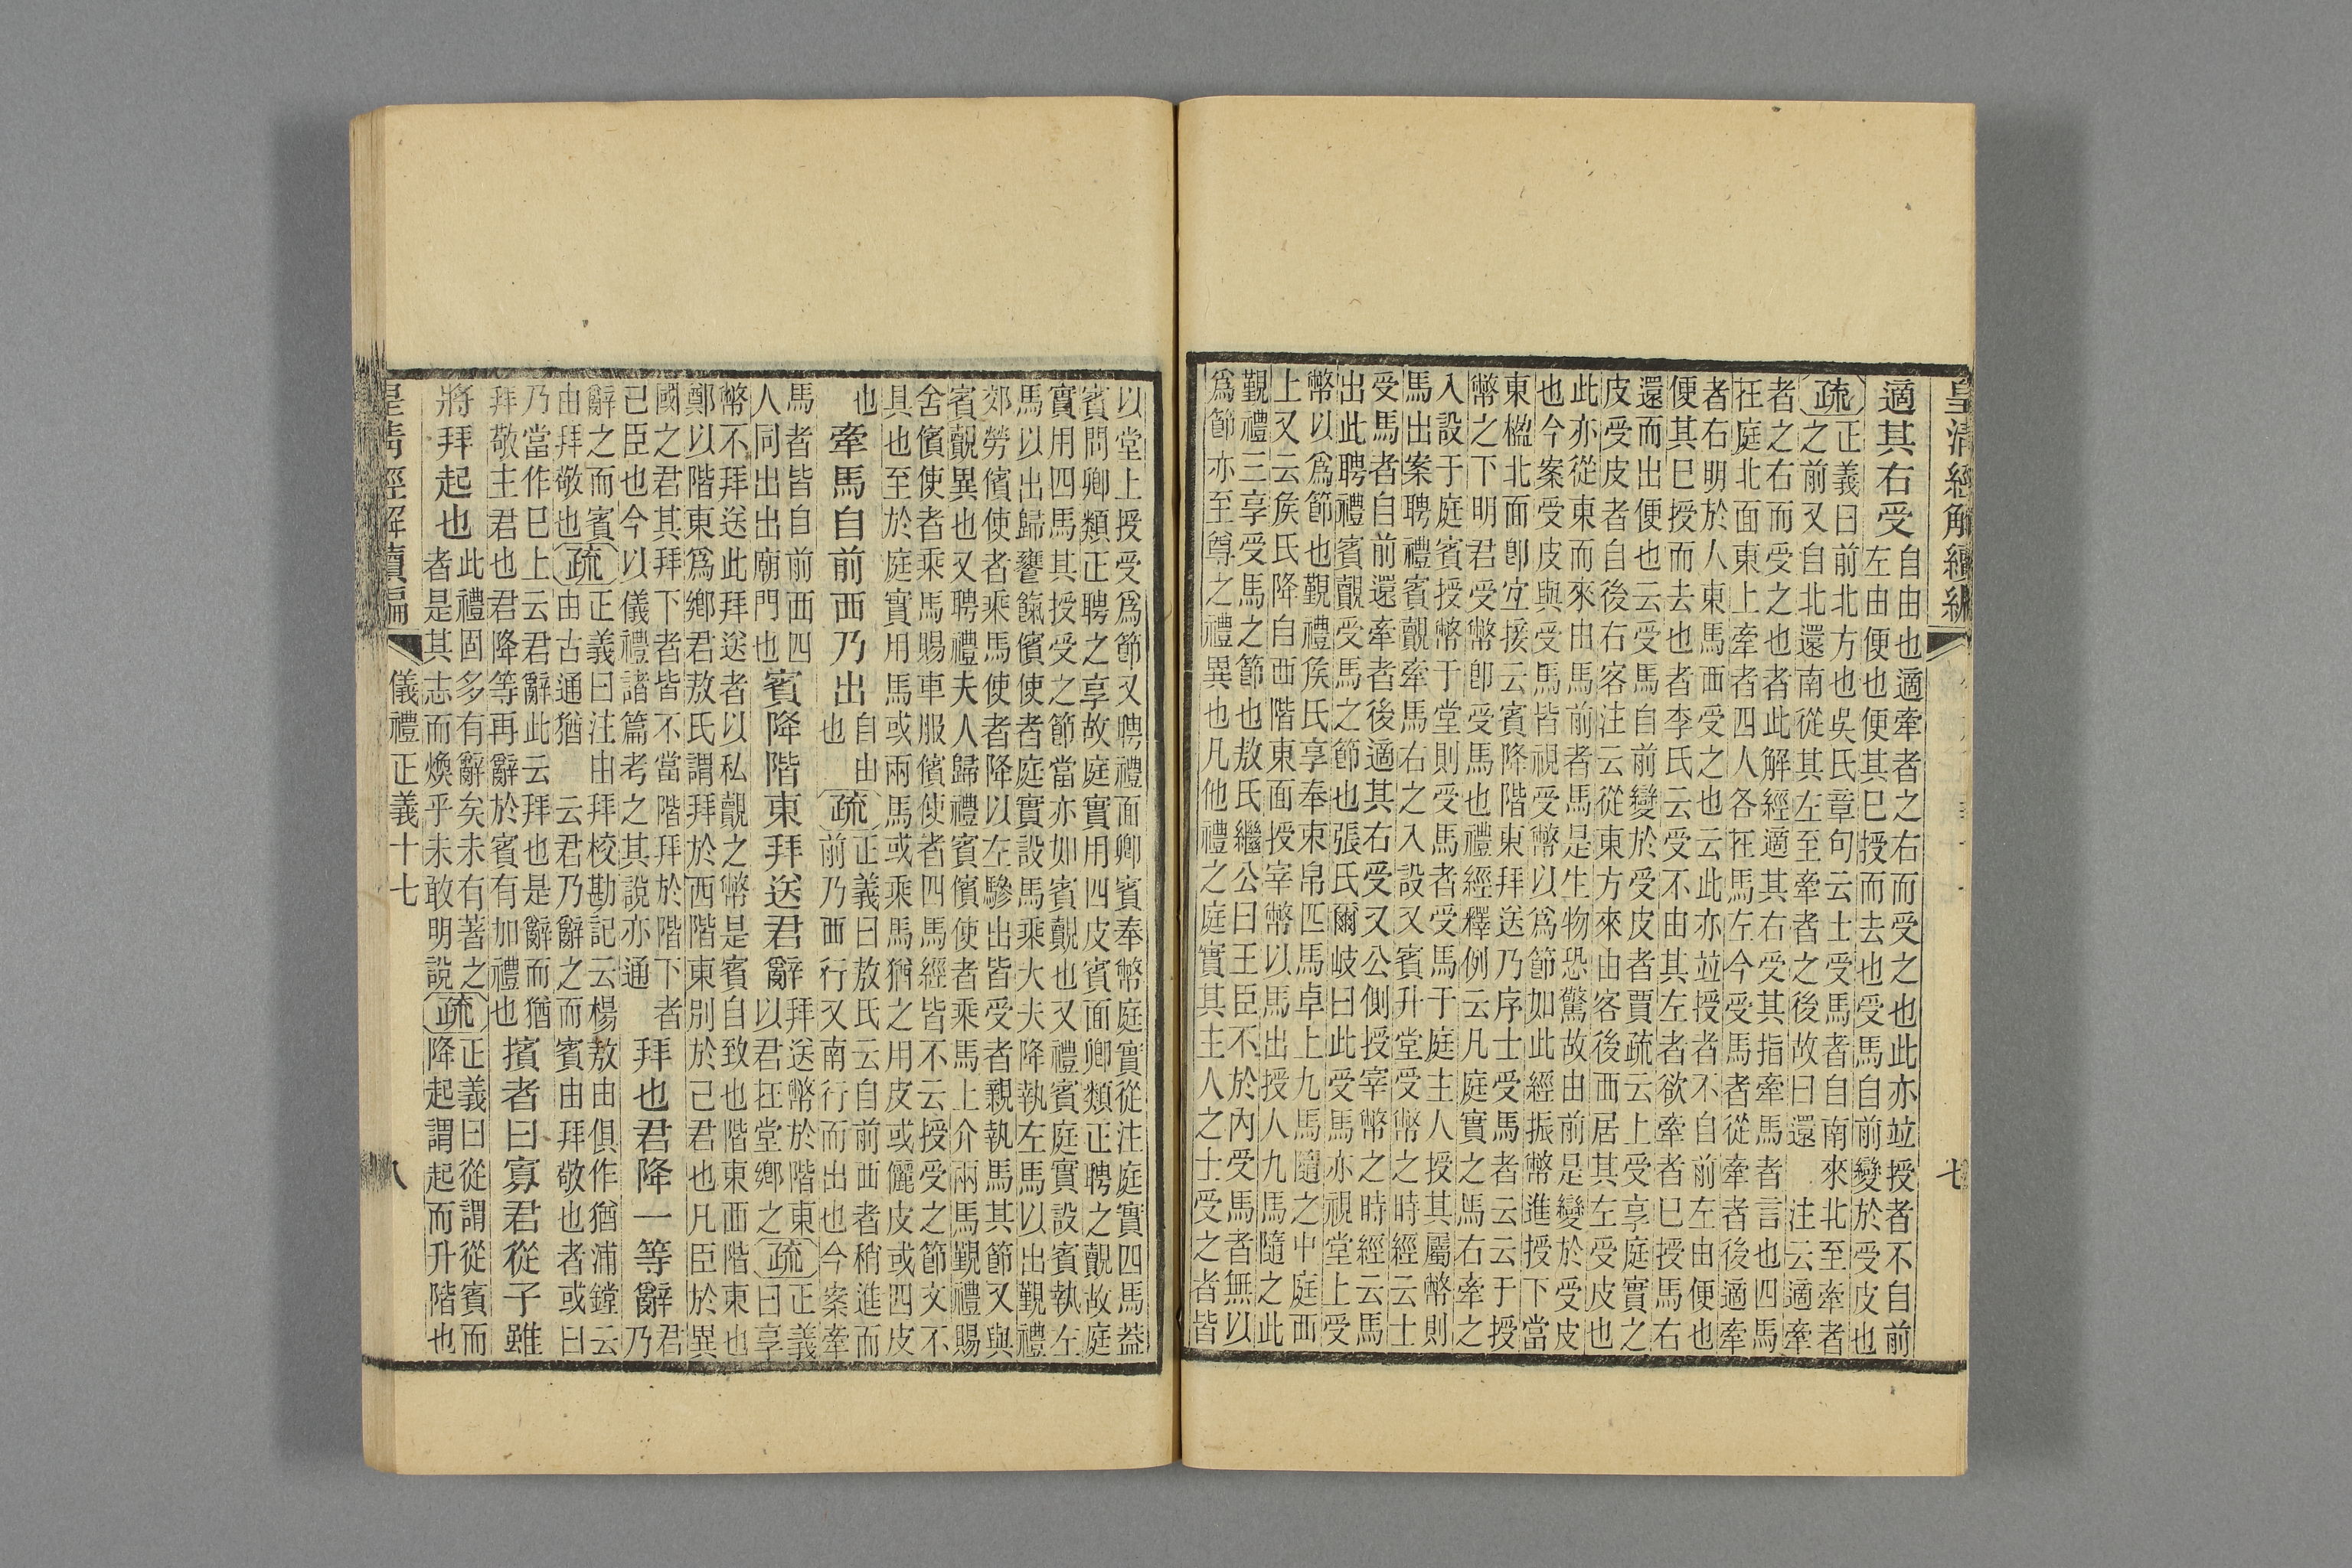 皇清經解續編
七
適其右受
自由也適牽者之右而受之也此亦竝授者不自前
左由便也便其已授而去也受馬自前變於受皮也
疏
正義曰前北方也吳氏章句云士受馬者自南來北至牽者
之前又自北還南從其左至牽者之後故曰還 注云適牽
者之右而受之也者此解經適其右受其指牽馬者言也四馬
在庭北面東上牽者四人各在馬左今受馬者從牽者後適牽
者右明於人東馬西受之也云此亦竝授者不自前左由便也
便其已授而去也者李氏云受不由其左者欲牽者已授馬右
還而出便也云受馬自前變於受皮者賈疏云上受享庭實之
皮受皮者自後右客注云從東方來由客後西居其左受皮也
此亦從東而來由馬前者馬是生物恐驚故由前是變於受皮
也今案受皮與受馬皆視受幣以爲節如此經振幣進授下當
東楹北面卽宜接云賓降階東拜送乃序士受馬者云云于授
幣之下明君受幣卽受馬也禮經釋例云凡庭實之馬右牽之
入設于庭賓授幣于堂則受馬者受馬于庭主人授其屬幣則
馬出案聘禮賓覿牽馬右之入設又賓升堂受幣之時經云士
受馬者自前還牽者後適其右受又公側授宰幣之時經云馬
出此聘禮賓覿受馬之節也張氏爾岐曰此受馬亦視堂上受
幣以爲節也覲禮侯氏享奉束帛匹馬卓上九馬隨之中庭西
上又云侯氏降自西階東面授宰幣以馬出授人九馬隨之此
覲禮三享受馬之節也敖氏繼公曰王臣不於內受馬者無以
爲節亦至尊之禮異也凡他禮之庭實其主人之士受之者皆
以堂上授受爲節又聘禮面卿賓奉幣庭實從注庭實四馬蓋
賓問卿類正聘之享故庭實用四皮賓面卿類正聘之覿故庭
實用四馬其授受之節當亦如賓覿也又禮賓庭實設賓執左
馬以出歸饔餼儐使者庭實設馬乘大夫降執左馬以出覲禮
郊勞儐使者乘馬使者降以左驂出皆受者親執馬其節又與
賓覿異也又聘禮夫人歸禮賓儐使者乘馬上介兩馬覲禮賜
舍儐使者乘馬賜車服儐使者四馬經皆不云授受之節文不
具也至於庭實用馬或兩馬或乘馬猶之用皮或儷皮或四皮
也
牽馬自前西乃出
自由
也
疏
正義曰敖氏云自前西者稍進而
前乃西行又南行而出也今案牽
馬者皆自前西四
人同出出廟門也
賓降階東拜送君辭
拜送幣於階東
以君在堂鄉之
疏
正義
曰享
幣不拜送此拜送者以私覿之幣是賓自致也階東西階東也
鄭以階東爲鄉君敖氏謂拜於西階東別於己君也凡臣於異
國之君其拜下者皆不當階拜於階下者
已臣也今以儀禮諸篇考之其說亦通
拜也君降一等辭
君
乃
辭之而賓
由拜敬也
疏
正義曰注由拜校勘記云楊敖由俱作猶浦鏜云
由古通猶 云君乃辭之而賓由拜敬也者或曰
乃當作已上云君辭此云拜也是辭而猶
拜敬主君也君降等再辭於賓有加禮也
擯者曰寡君從子雖
將拜起也
此禮固多有辭矣未有著之
者是其志而煥乎未敢明說
疏
正義曰從謂從賓而
降起謂起而升階也
皇清經解續編
儀禮正義十七
八